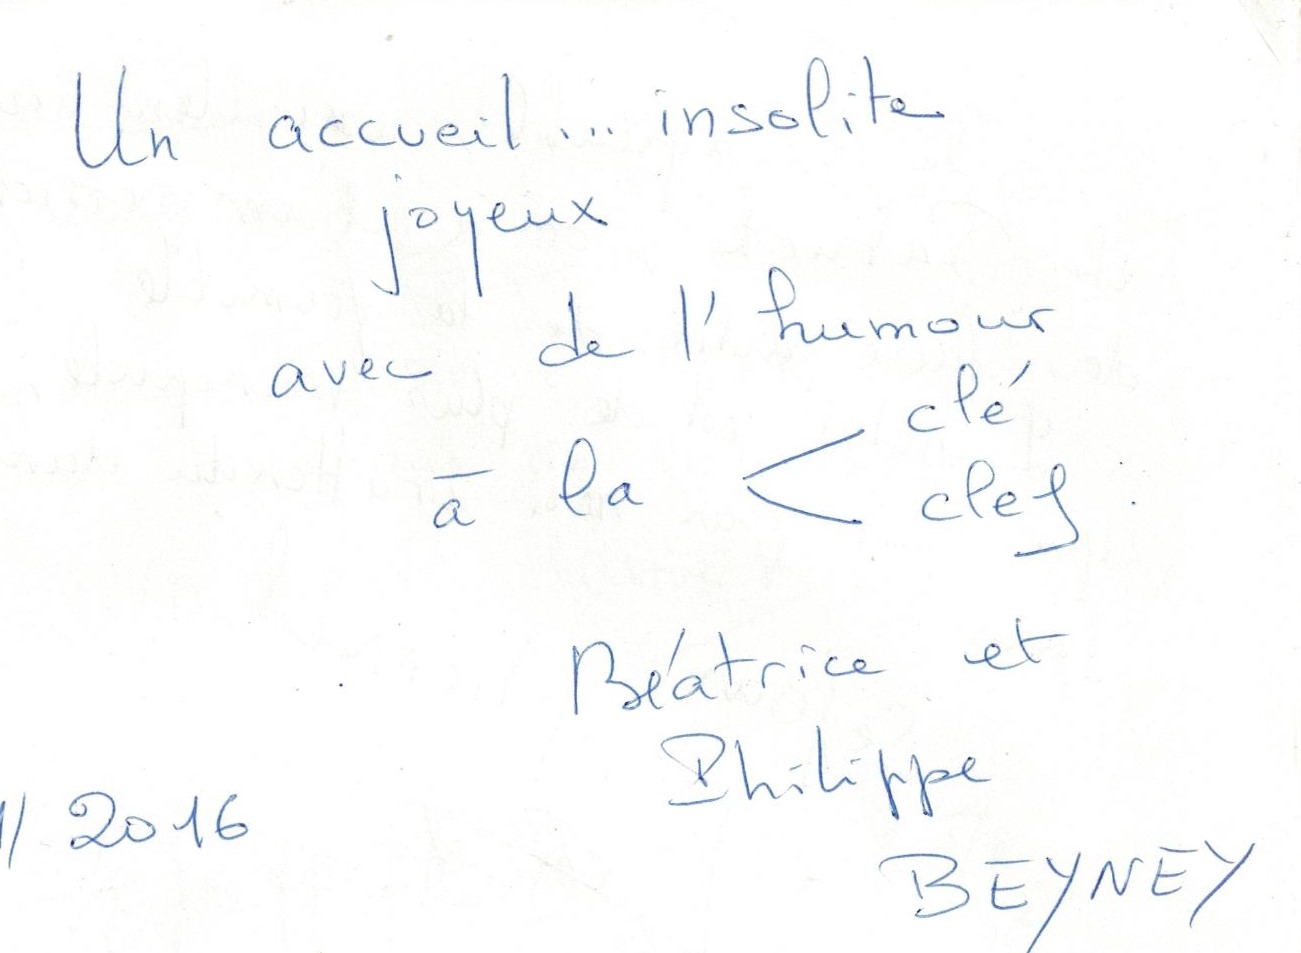 Un accueil... insolite
joyeux
avec de l'humour
à la < clé
clef.
Béatrice et
Philippe
BEYNEY
/ 2016